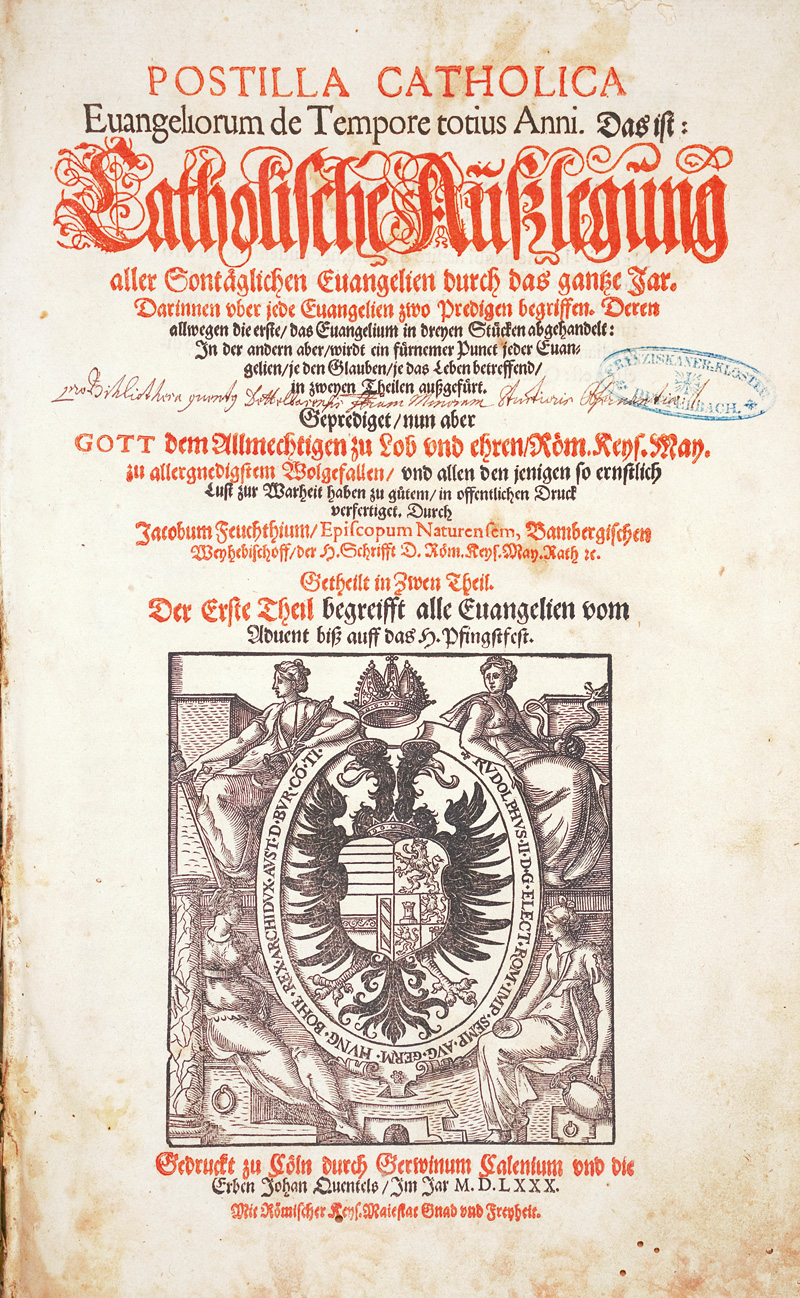 POSTILLA CATHOLICA
Euangeliorum de Tempore totius Anni. Das ist:
Catholische Außlegung
aller Sontäglichen Euangelien durch das gantze Jar.
Darinnen vber jede Euangelien zwo Predigen begriffen. Deren
allwegen die erste/das Euangelium in dreyen Stücken abgehandelt:
In der andern aber/wirdt ein fürnemer Punct jeder Euan-
gelien/je den Glauben/je das Leben betreffend/
in zweyen Theilen außgefürt.
FRANZISKANER-KLOSTER
pro Bibliotheca
Geprediget/nun aber
GOTT dem Allmechtigen zu Lob vnd ehren/Röm. Keys. May.
zu allergnedigstem Wolgefallen/ vnd allen den jenigen so ernstlich
Lust zur Warheit haben zu gütem/in offentlichen Druck
verfertiget. Durch
Jacobum Feuchthium/Episcopum Naturensem, Bambergischen
Weyhebischoff/der H. Schrifft D. Röm. Keys. May. Rath ꝛc.
Getheilt in Zwen Theil.
Der Erste Theil begreifft alle Euangelien vom
Aduent biß auff das H. Pfingstfest.
* RVDOLPHVS·II·D·G·ELECT·ROM·IMP·SEMP·AVG·GERM·HVNG·BOHE·REX·ARCHIDVX·AVST·D·BVR·CO·TI·
Gedruckt zu Cöln durch Gerwinum Calenium vnd die
Erben Johan Quentels/Im Jar M. D. LXXX.
Mit Römischer Keys. Maiestat Gnad vnd Freyheit.